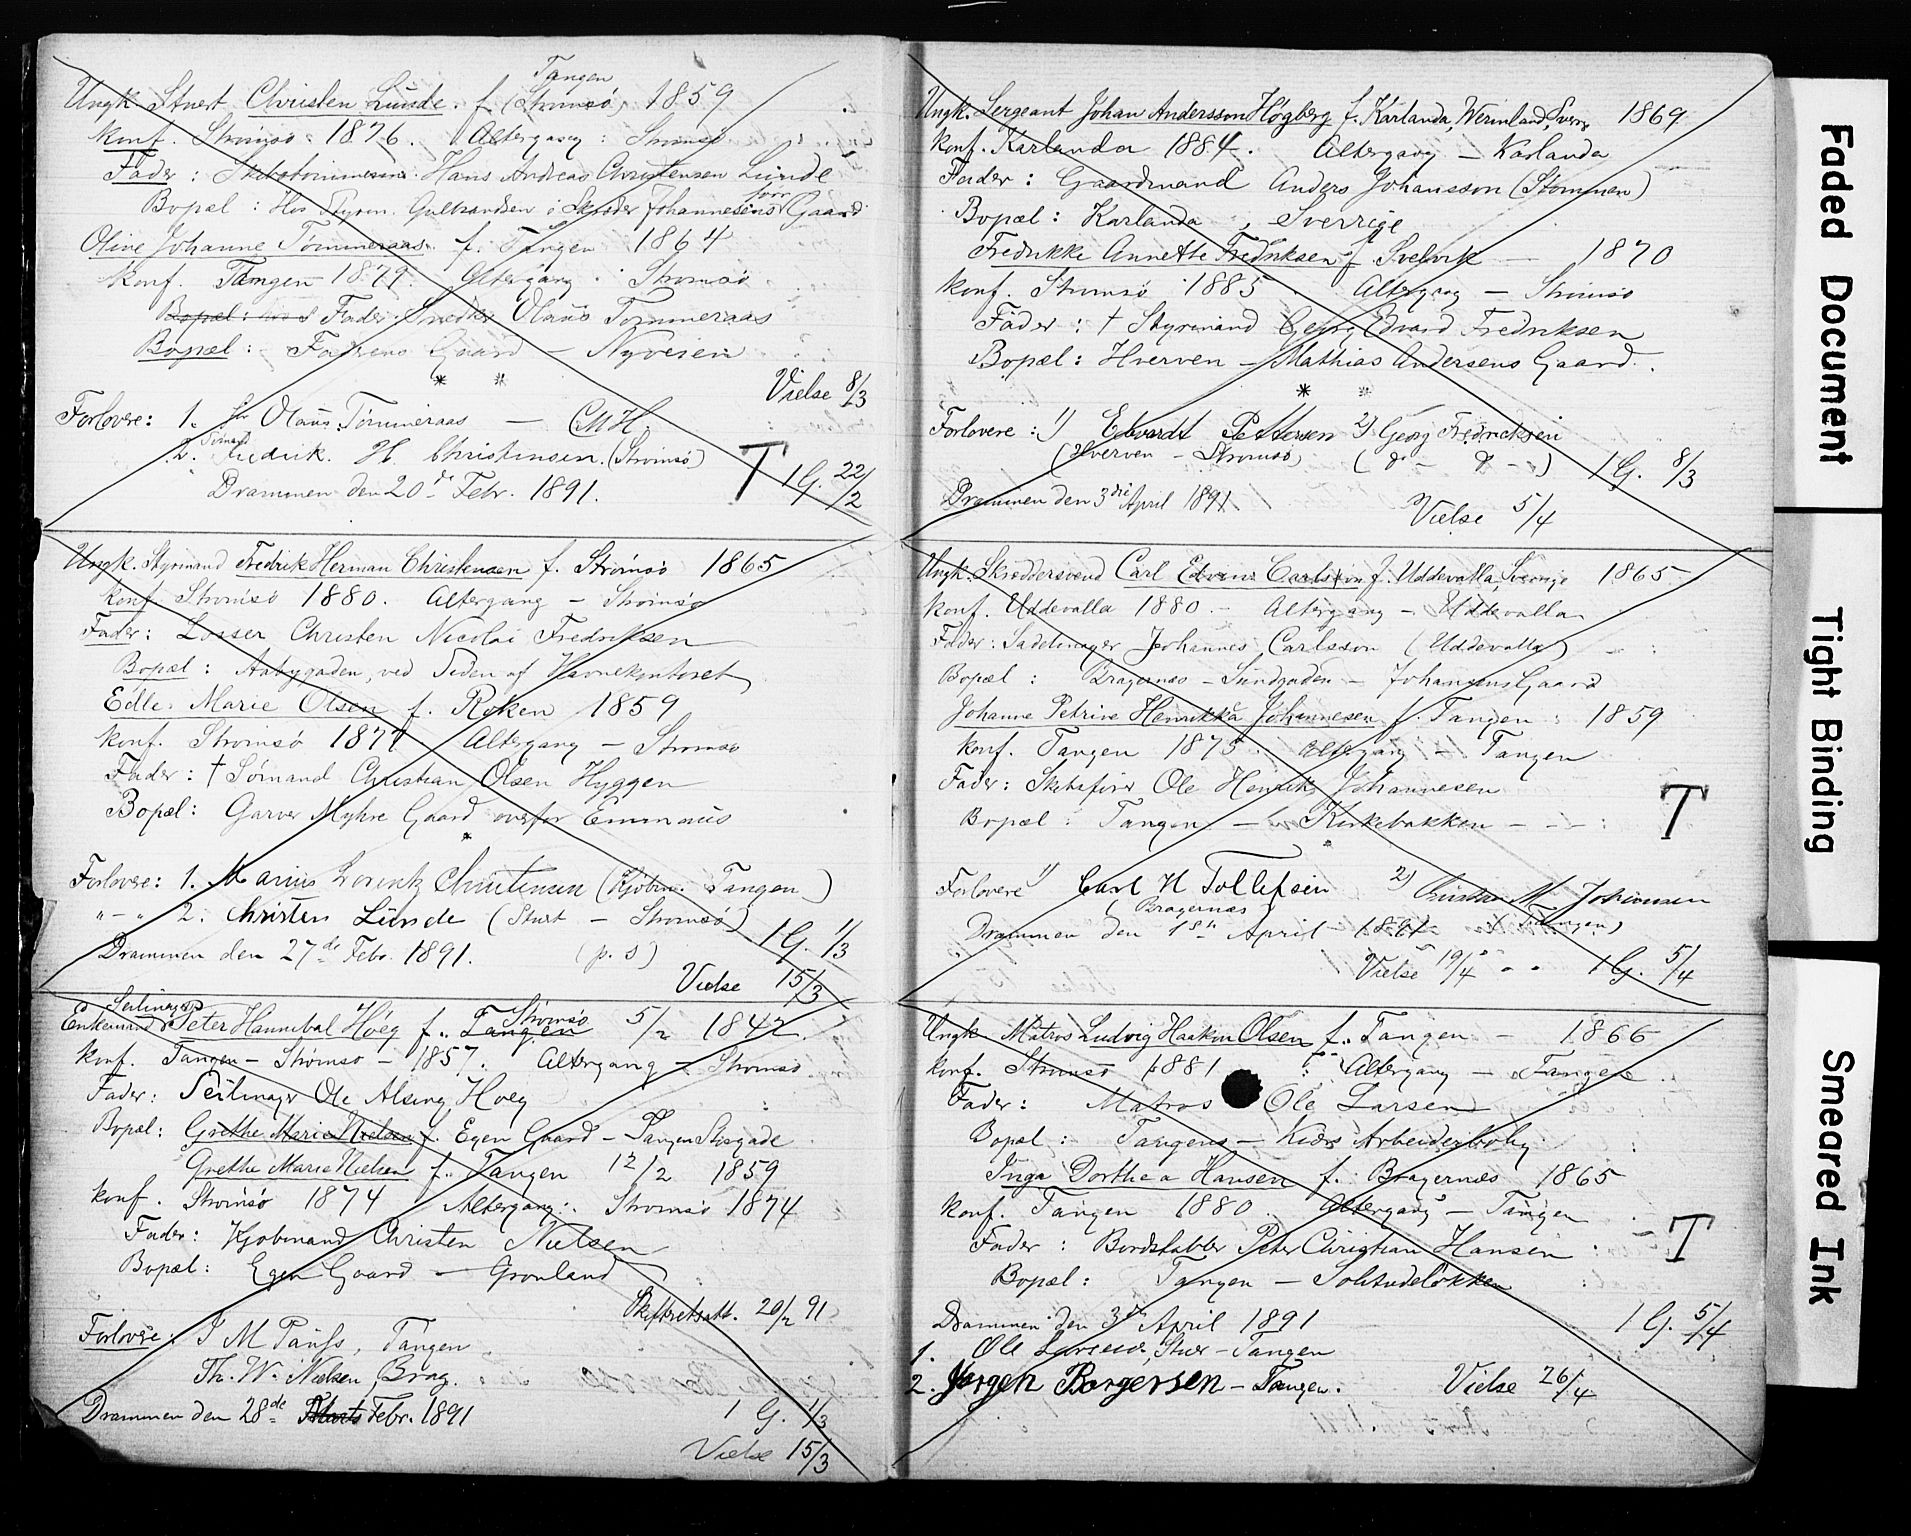 Tangen
Ungk. Stuert Christen Lunde. f. (Strømsø) 1859
Konf. Strømsø 1876. Altergang: Strømsø
Fader: Skibstømmerm. Hans Andreas Christensen Lunde
Bopæl: Hos Styrm. Gulbrandsen i Skræder Johannesens Gaard
Olive Johanne Tømmeraas. f. Tangen 1864
Konf. Tangen 1879. Altergang: Strømsø
Bopæl: Fader: Snedker Olaus Tømmeraas
Bopæl: Faderens Gaard – Nyveien
* *
Vielse 8/3
Forlovere: 1. Olaus Tømmeraas – CMH.
Sømand
2. Fredrik. H. Christensen. (Strømsø)
T 1 G. 22/2
Drammen den 20de Febr. 1891.
Ungk. Styrmand Fredrik Herman Christensen f. Strømsø 1865
Konf. Strømsø 1880. Altergang – Strømsø
Fader: Losser Christen Nicolai Fredriksen
Bopæl: Aabygaden, ved Siden af Havnekontoret
Edle Marie Olsen f. Røken 1859
Konf. Strømsø 1874 Altergang – Strømsø
Fader: † Sømand Christian Olsen Hyggen
Bopæl: Garver Myhre Gaard overfor Emmaus
*
Forlovere: 1. Marius Lorentz Christensen (Kjøbm. Tangen)
„ – „ 2. Christen Lunde (Stuert – Strømsø)
1 G. 1/3
Drammen den 27de Febr. 1891. (p. s)
Vielse 15/3
Seilmager
Strømsø
Enkemand Peter Hannibal Höeg f. Tangen 5/2 1842.
Konf. Tangen – Strømsø – 1857. Altergang – Strømsø
Fader: Seilmager Ole Alsing Høeg
Bopæl: Grethe Marie Nielsen f. Egen Gaard – Tangen Storgade
Grethe Marie Nielsen f. Tangen 12/2 1859
Konf. Strømsø 1874 Altergang: Strømsø 1874
Fader: Kjøbmand Christen Nielsen
Bopæl: Egen Gaard – Grønland
Skifteretsatt. 20/2 91
Forlovere: J M Pauss, Tangen
Th. W. Nielsen, Brag.
Drammen den 28de Marts Febr. 1891
1 G. 1/3
Vielse 15/3
Ungk. Sergeant Johan Andersson Högberg f. Karlanda, Wermland, Sverg 1869
Konf. Karlanda 1884. Altergang – Karlanda
Fader: Gaardmand Anders Johansson (Stommen)
Bopæl: Karlanda, Sverrige
Fredrikke Annette Fredriksen f. Svelvik – 1870
Konf. Strømsø 1885 Altergang – Strømsø
Fader: † Styrmand Georg Edvard Fredriksen
Bopæl: Hverven – Mathias Andersens Gaard.
* *
Forlovere: 1) Edvardt Pettersen 2) Georg Fredricksen
(Hverven – Strømsø) (do – do –)
1 G. 8/3
Drammen den 3die April 1891
Vielse 5/4
Ungk. Skræddersvend Carl Edvin Carlsson f. Uddevalla, Sverige 1865
Konf. Uddevalla 1880. – Altergang – Uddevalla
Fader: Sadelmager Johannes Carlsson (Uddevalla)
Bopæl: Bragernæs – Sundgaden – Johansens Gaard
Johanne Petrine Henrikka Johannesen f. Tangen: 1859
Konf. Tangen 1875 Altergang – Tangen
Fader: Skibsfører Ole Henrik Johannesen
Bopæl: Tangen – Kirkebakken
T
*
Forlovere 1) Carl H Tollefsen 2) Christian M. Johannsen
(Bragernæs) (Tangen)
Drammen den 18de April 1891
Vielse 19/4 1 G. 5/4
Ungk Matros Ludvig Haakon Olsen f. Tangen – 1866
Konf. Strømsø 1881 Altergang – Tangen
Fader: Matros Ole Larsen
Bopæl: Tangen – Kiærs Arbeiderbolig
Inga Dorthea Hansen f. Bragernæs 1865
Konf. Tangen 1880. Altergang – Tangen
Fader: Bordstabler Peter Christian Hansen
T
Bopæl: Tangen – Solitudeløkken
Drammen den 3die April 1891
1 G. 5/4
1. Ole Larsen, Stuer – Tangen
2. Jørgen Borgersen – Tangen. Vielse 26/4
Faded Document
Tight Binding
Smeared Ink